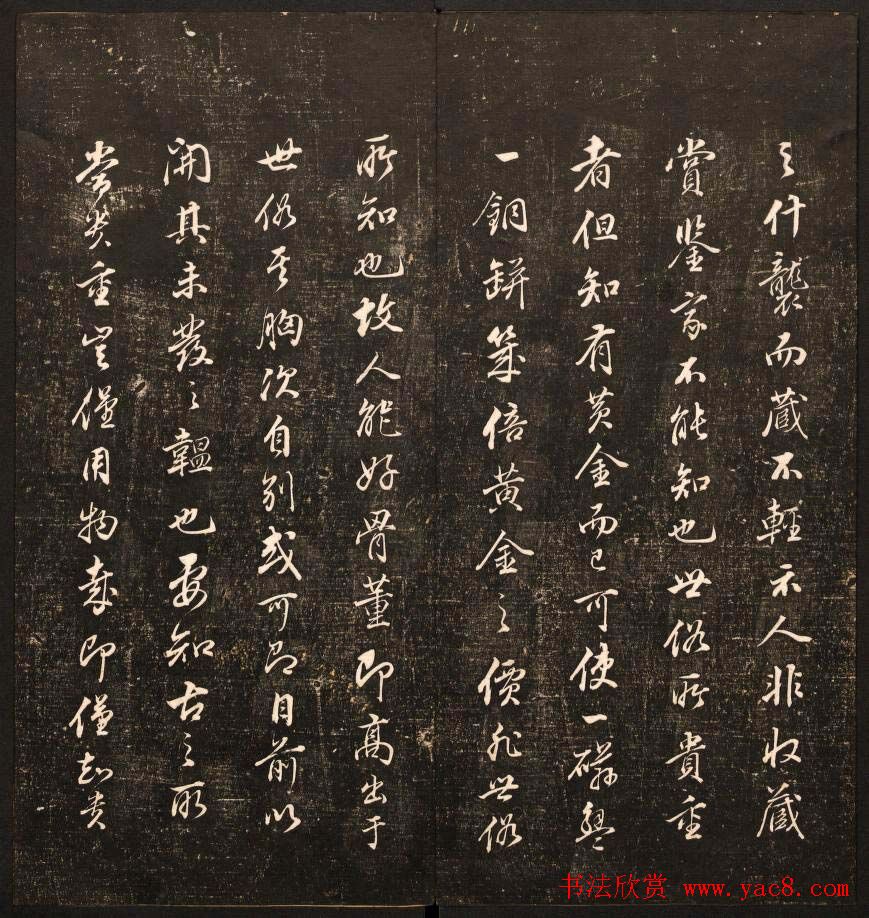 之什襲而藏不輕示人非收藏
賞鑒家不能知也世俗所貴重
者但知有黃金而已可使一磁盌
一銅缾幾倍黃金之價非世俗
所知也故人能好骨董即高出于
世俗其胸次自別或可即目前以
開其未發之韞也要知古之所
貴重豈僅用物哉即僅知貴
书法欣赏 www.yac8.com